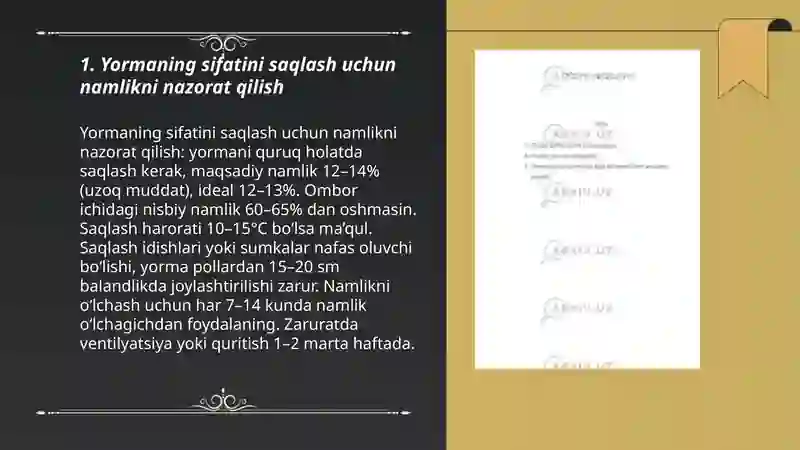 1. Yormaning sifatini saqlash uchun
namlikni nazorat qilish
Yormaning sifatini saqlash uchun namlikni
nazorat qilish: yormani quruq holatda
saqlash kerak, maqsadiy namlik 12–14%
(uzoq muddat), ideal 12–13%. Ombor
ichidagi nisbiy namlik 60–65% dan oshmasin.
Saqlash harorati 10–15°C bo‘lsa ma’qul.
Saqlash idishlari yoki sumkalar nafas oluvchi
bo‘lishi, yorma pollardan 15–20 sm
balandlikda joylashtirilishi zarur. Namlikni
o‘lchash uchun har 7–14 kunda namlik
o‘lchagichdan foydalaning. Zaruratda
ventilyatsiya yoki quritish 1–2 marta haftada.